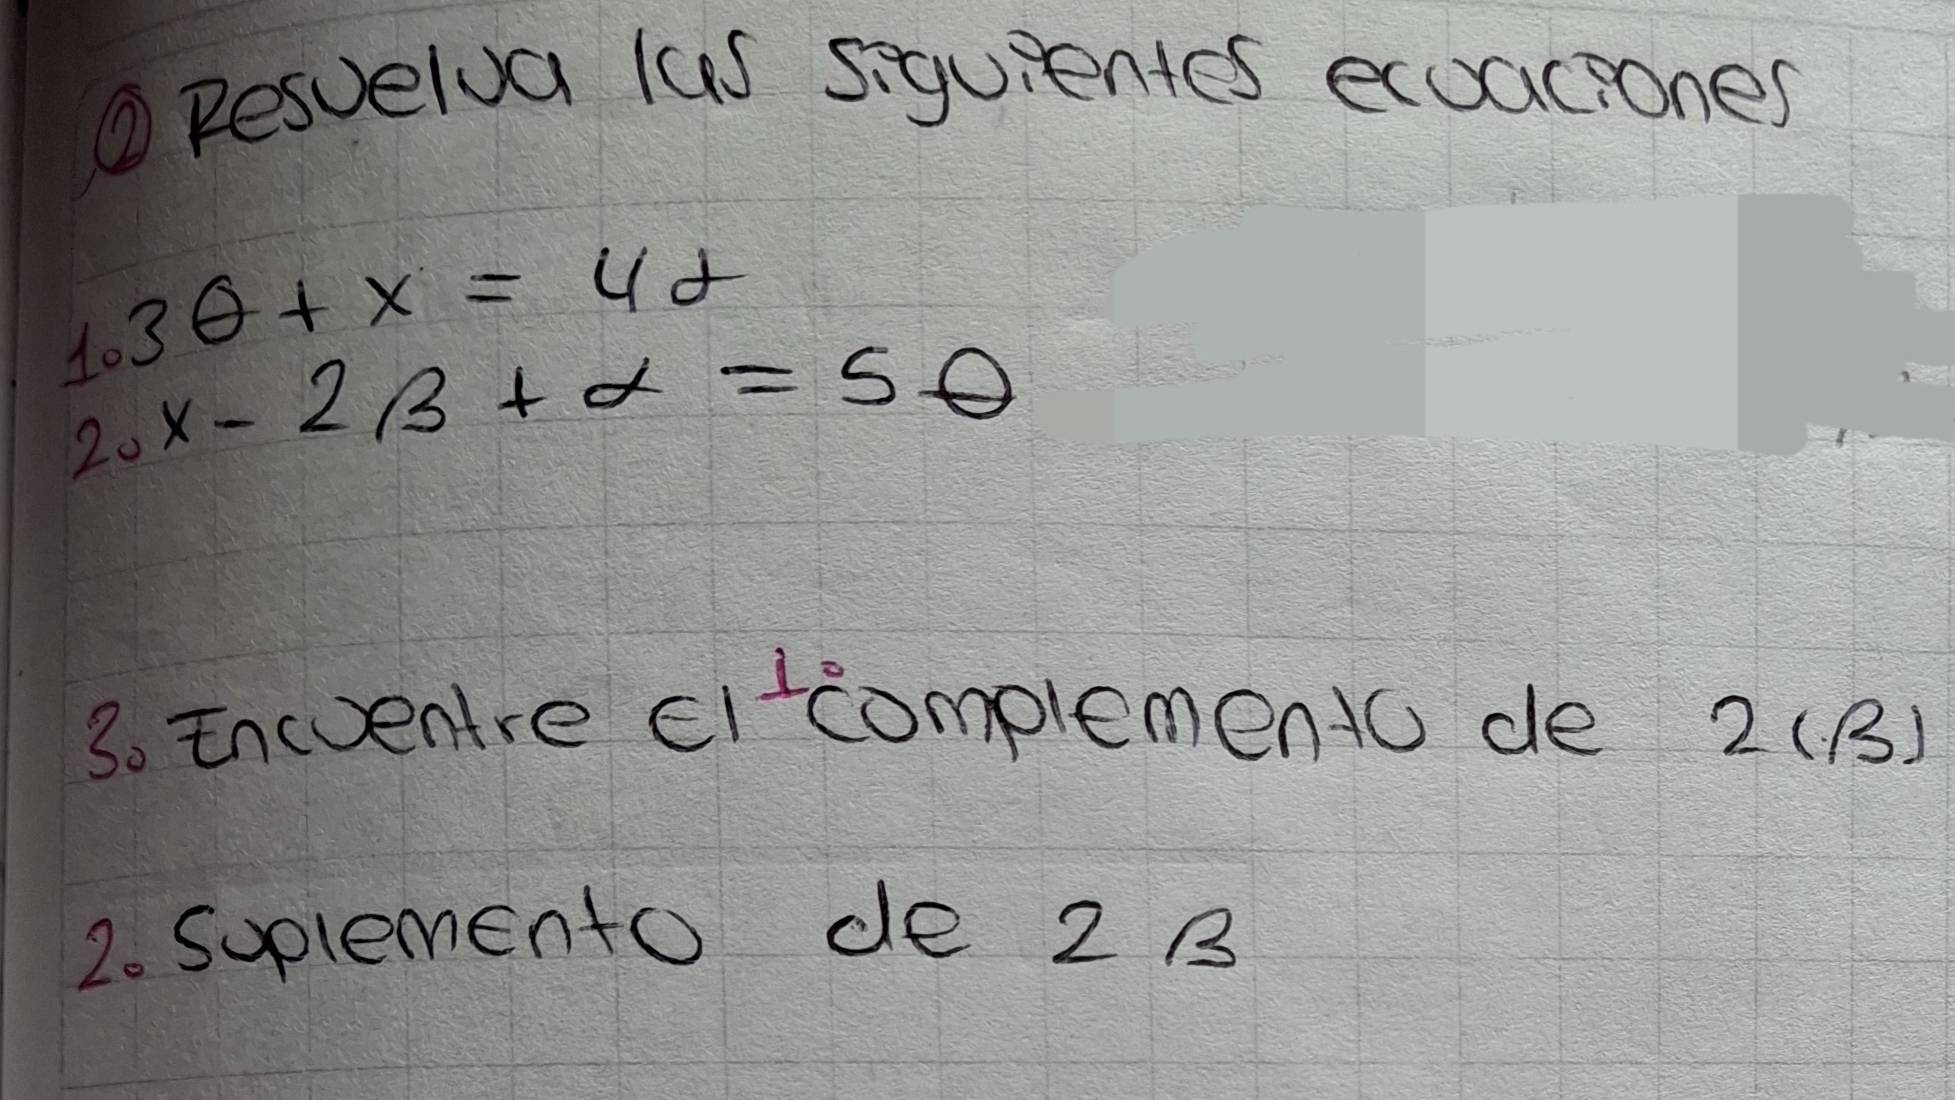 ② Resuelva las siguientes ecuaciones
1. 3θ + x = 4α
2. x - 2β + α = 5θ
3. Encuentre el 1. complemento de 2(β)
2. Suplemento de 2β